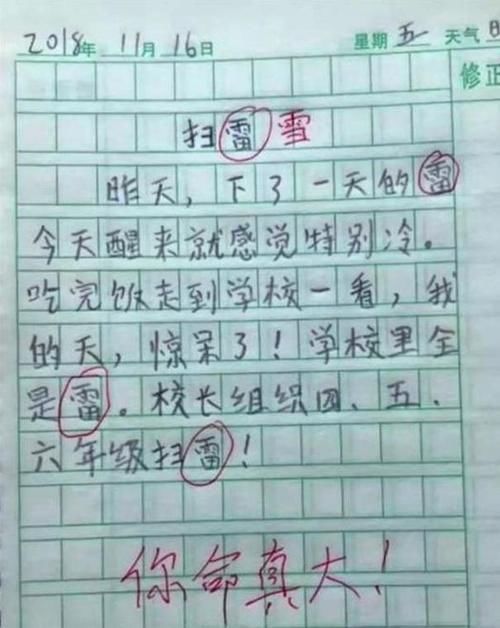 2018年 11月 16日 星期 五 天气
修正
扫雷 雪
昨天，下了一天的雷
今天醒来就感觉特别冷。
吃完饭走到学校一看，我
的天，惊呆了！学校里全
是雷。校长组织四、五、
六年级扫雷！
你命真大！